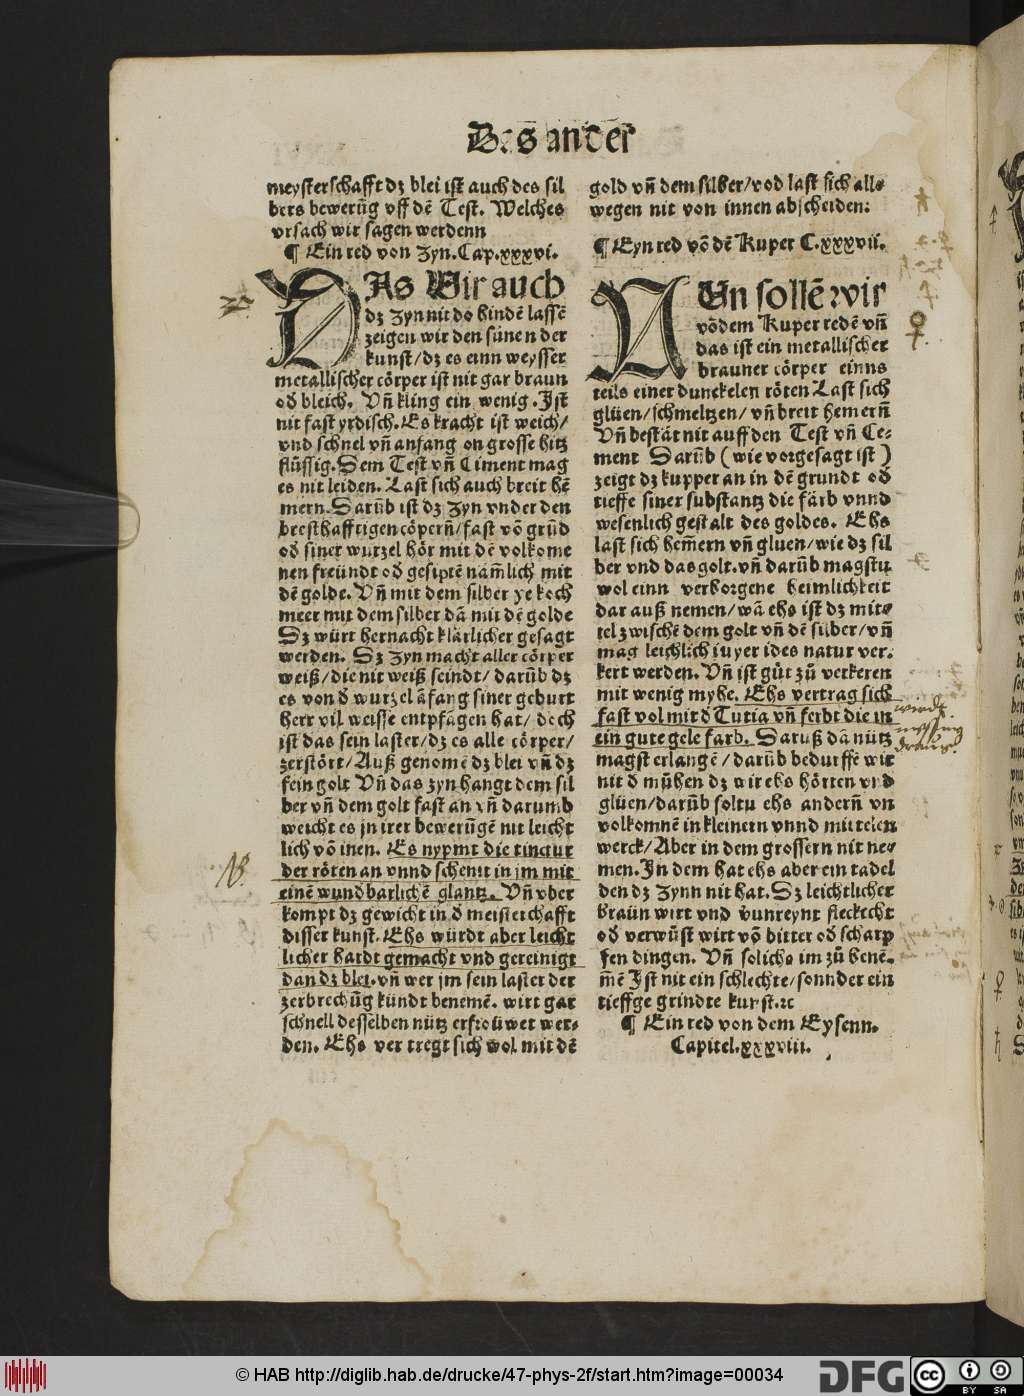 Das ander
meysterschafft dz blei ist auch des sil
bers bewerũg vff dẽ Test. Welches
vrsach wir sagen werdenn
¶ Ein red von Zyn. Cap.xxxvi.
DAs Wir auch
dz Zyn nit do hindẽ lassẽ
zeigen wir den sünen der
kunst/dz es einn weysser
metallischer cörper ist nit gar braun
od bleich. Vñ kling ein wenig. Ist
nit fast yrdisch. Es kracht ist weich/
vnd schnel vñ anfang on grosse hitz
flüssig. Dem Test vñ Ciment mag
es nit leiden. Last sich auch breit hẽ
mern. Darũb ist dz Zyn vnder den
bresthafftigen cöpern̄/fast võ grũd
od siner wurzel hör mit dẽ volkome
nen freündt od gesiptẽ nãm̃lich mit
dẽ golde. Vñ mit dem silber ye hoch
meer mit dem silber dã mit dẽ golde
Dz würt hernacht klärlicher gesagt
werden. Dz Zyn macht aller cörper
weiß/die nit weiß seindt/darũb dz
es von d wurzel ãfang siner geburt
herr vil weisse entpfãgen hat/doch
ist das sein laster/dz es alle cörper/
zerstört/Auß genomẽ dz blei vñ dz
fein golt Vñ das zyn hangt dem sil
ber vñ dem golt fast an vñ darumb
weicht es jn irer bewerũgẽ nit leicht
lich võ inen. Es nypmt die tinctur
der röten an vnnd schentt in jm mit
einẽ wundbarlichẽ glantz. Vñ vber
kompt dz gewicht in d meisterchafft
disser kunst. Ehs würdt aber leicht
licher hardt gemacht vnd gereinigt
dan dz blei. vñ wer jm sein laster der
zerbrechũg kündt benemẽ. wirt gar
schnell desselben nütz erfroüwet wer-
den. Ehs ver tregt sich wol mit dẽ
gold vñ dem silber/vnd last sich alle
wegen nit von innen abscheiden:
¶ Eyn red võ dẽ Kuper C.xxxvii.
NUn sollẽ wir
võ dem Kuper redẽ vñ
das ist ein metallischer
brauner cörper einns
teils einer dunckelen röten Last sich
glüen/schmeltzen/vñ breit hemern̄
Vñ bestät nit auff den Test vñ Ce-
ment Darũb (wie vorgesagt ist)
zeigt dz kupper an in dẽ grundt od
tieffe siner substantz die färb vnnd
wesenlich gestalt des goldes. Ehs
last sich hem̃ern vñ gluen/wie dz sil
ber vnd das golt. vñ darũb magstu
wol einn verborgene heimlichkeit
dar auß nemen/wã ehs ist dz mit-
tel zwischẽ dem golt vñ dẽ silber/vñ
mag leichlich in yer ides natur ver-
kert werden. Vñ ist güt zů verkeren
mit wenig myhe. Ehs vertrag sich
fast vol mit d Tutia vñ ferbt die in
ein gute gele farb. Daruß dã nütz
magst erlangẽ/darũb bedurffẽ wir
nit d mühen dz wir ehs hörten vnd
glüen/darũb soltu ehs andern̄ vn
volkomnẽ in kleinern vnnd mittelen
werck/Aber in dem grossern nit ne-
men. In dem hat ehs aber ein tadel
den dz Zynn nit hat. Dz leichtlicher
braün wirt vnd vunreynt fleckecht
od verwüst wirt võ bitter od scharp
fen dingen. Vñ soliche im zů benẽ-
m̃ẽ Ist nit ein schlechte/sonnder ein
tieffge grindte kunst.ꝛc
¶ Ein red von dem Eysenn.
Capitel.xxxviii.
NB.
♀
wirdt
messing
drauß.
© HAB http://diglib.hab.de/drucke/47-phys-2f/start.htm?image=00034
DFG
cc
BY SA